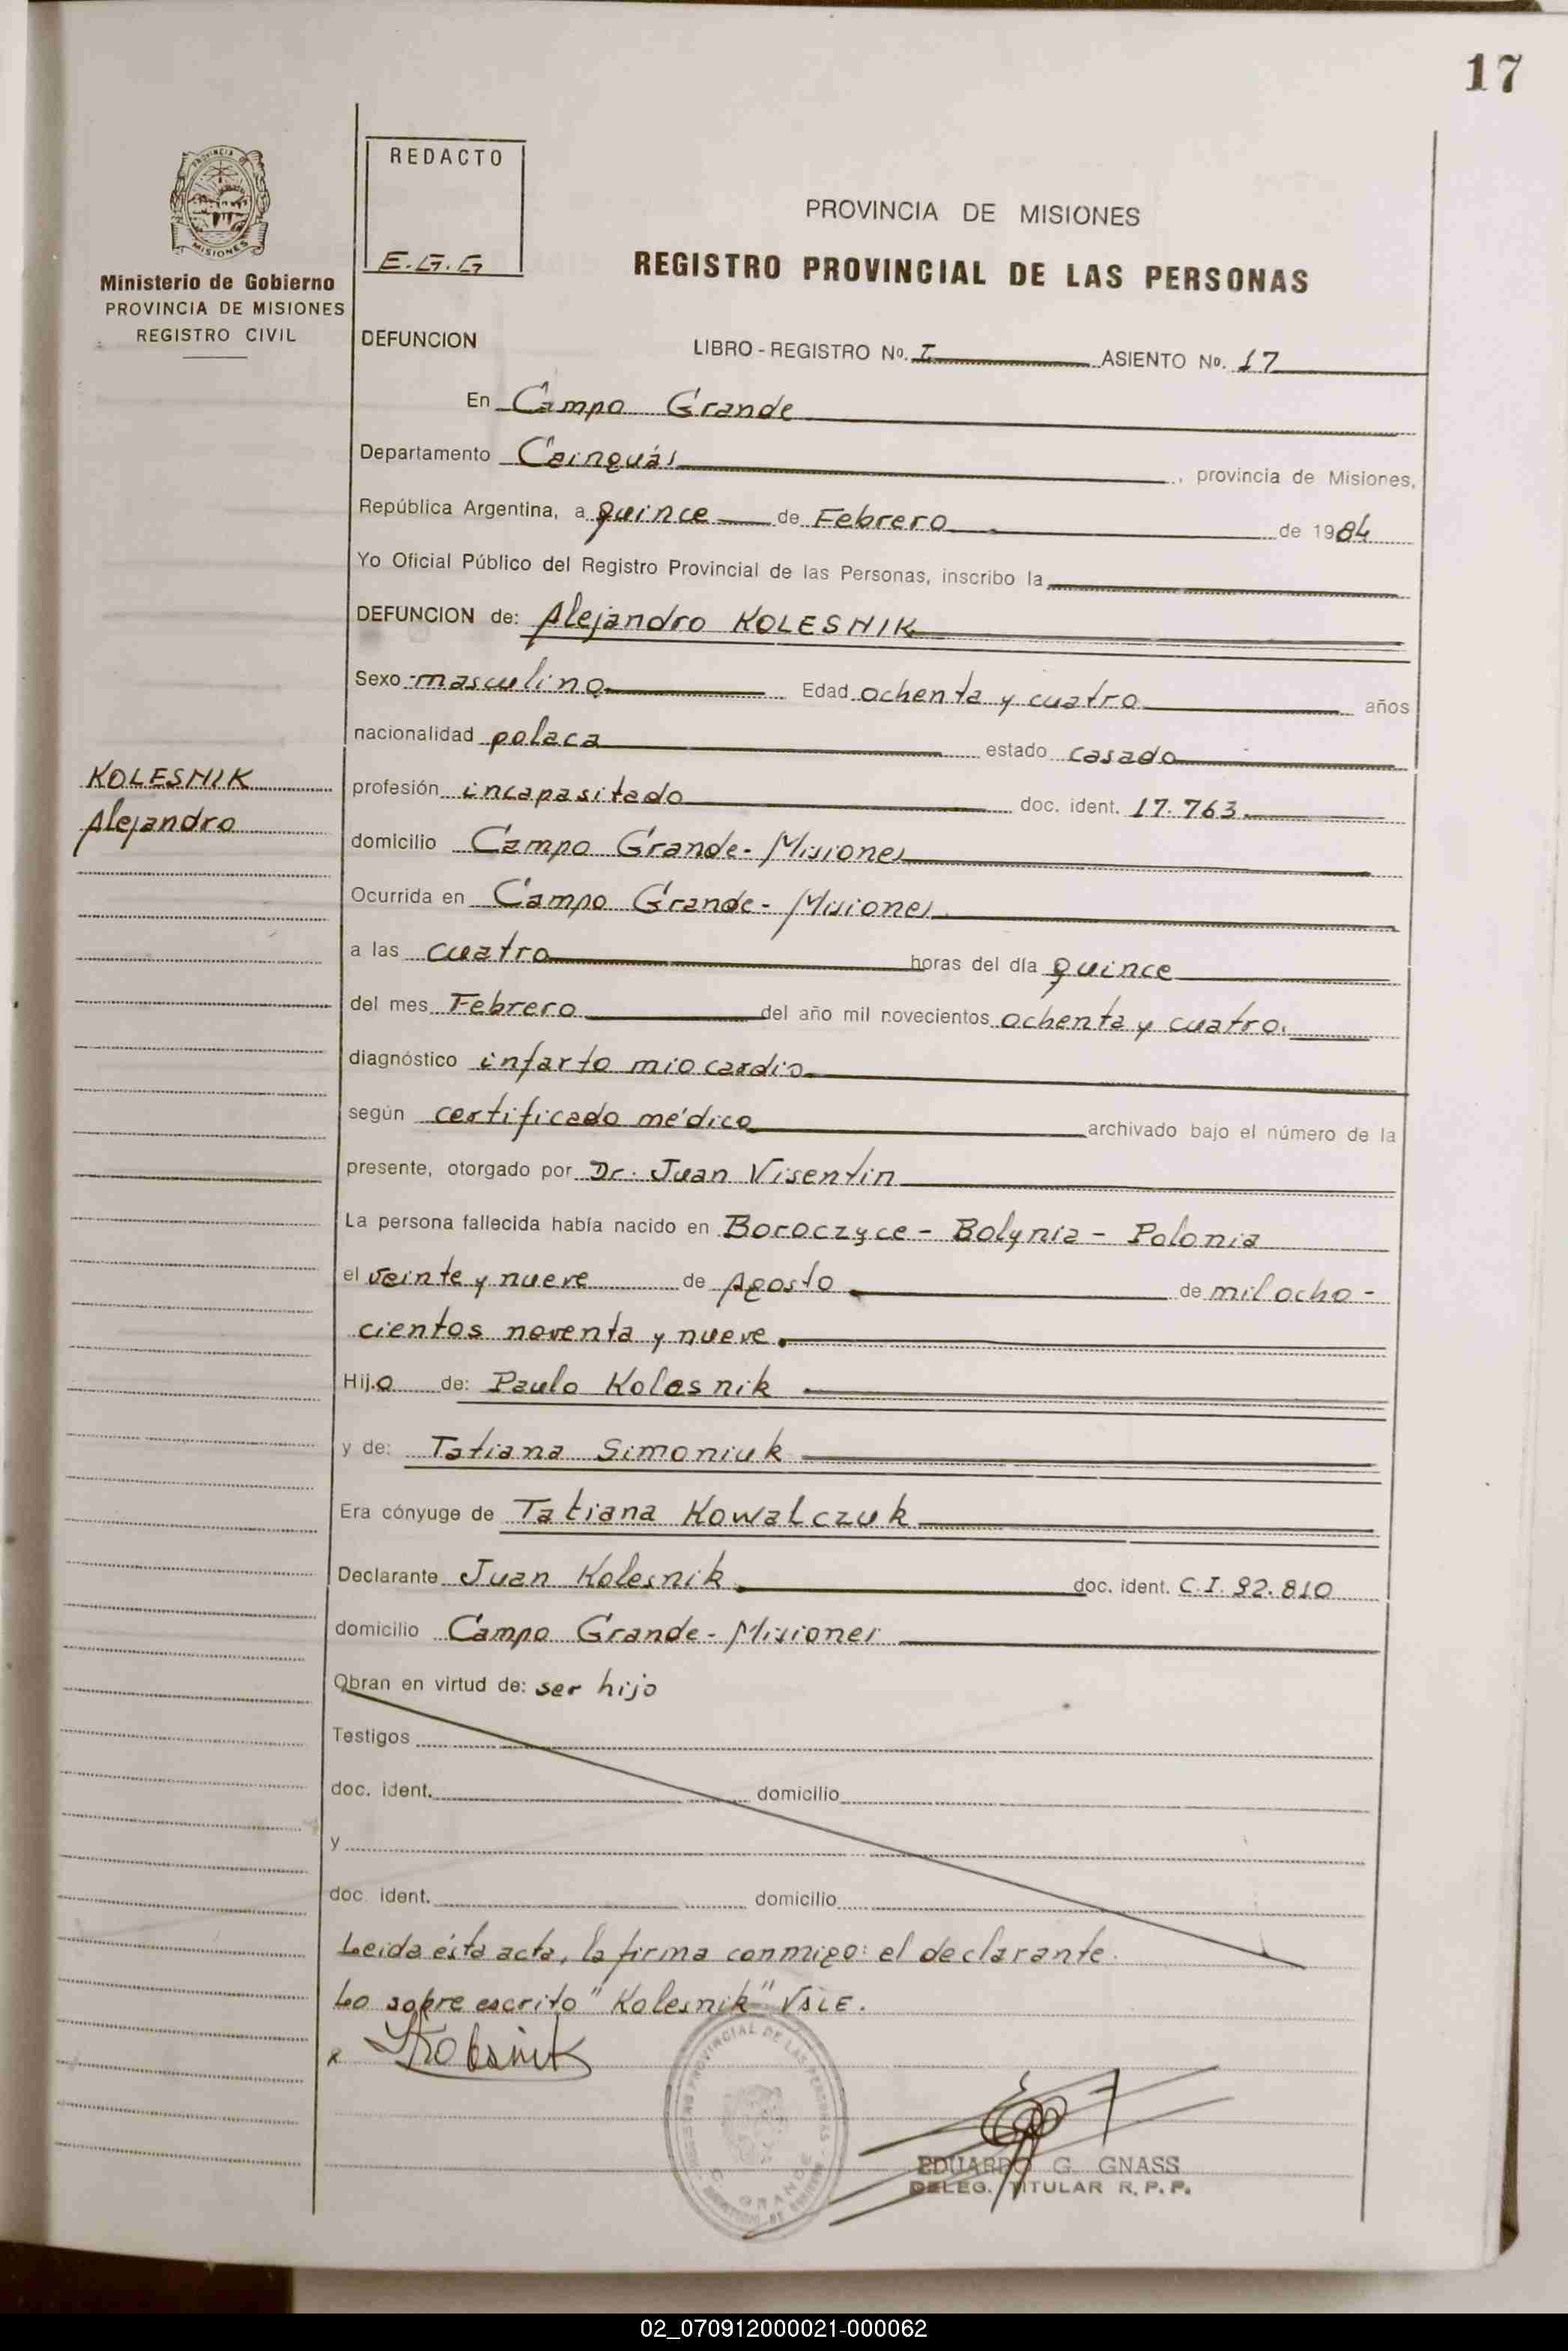 17
REDACTO
E.G.G
PROVINCIA DE MISIONES
REGISTRO PROVINCIAL DE LAS PERSONAS
MISIONES
Ministerio de Gobierno
PROVINCIA DE MISIONES
REGISTRO CIVIL
DEFUNCION LIBRO - REGISTRO Nº. I ASIENTO Nº. 17
En Campo Grande
Departamento Cainguás, provincia de Misiones,
República Argentina, a quince de Febrero de 1984
Yo Oficial Público del Registro Provincial de las Personas, inscribo la
DEFUNCION de: Alejandro KOLESNIK
Sexo masculino Edad ochenta y cuatro años
nacionalidad polaca estado casado
KOLESNIK
Alejandro
profesión incapasitado doc. ident. 17.763.
domicilio Campo Grande - Misiones
Ocurrida en Campo Grande - Misiones
a las cuatro horas del día quince
del mes Febrero del año mil novecientos ochenta y cuatro.
diagnóstico infarto miocardio
según certificado médico archivado bajo el número de la
presente, otorgado por Dr. Juan Visentin
La persona fallecida había nacido en Boroczyce - Bolynia - Polonia
el veinte y nueve de Agosto de mil ocho-
cientos noventa y nueve.
Hijo de: Paulo Kolesnik
y de: Tatiana Simoniuk
Era cónyuge de Tatiana Kowalczuk
Declarante Juan Kolesnik doc. ident. C.I. 92.810
domicilio Campo Grande - Misiones
Obran en virtud de: ser hijo
Testigos
doc. ident. domicilio
y
doc. ident. domicilio
Leida ésta acta, la firma conmigo: el declarante.
Lo sobre escrito "Kolesnik" VALE.
x Kolesnik
EDUARDO G. GNASS
DELEG. TITULAR R.P.P.
02_070912000021-000062